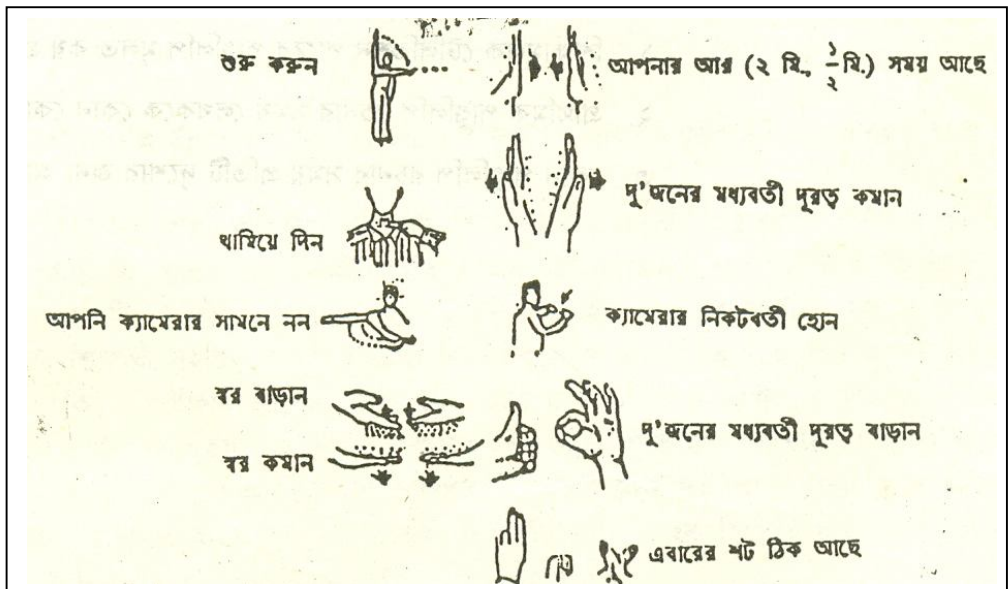 শুরু করুন
আপনার আর (২ মি., ১/২ মি.) সময় আছে
দু'জনের মধ্যবর্তী দূরত্ব কমান
থামিয়ে দিন
আপনি ক্যামেরার সামনে নন
ক্যামেরার নিকটবর্তী হোন
স্বর বাড়ান
দু'জনের মধ্যবর্তী দূরত্ব বাড়ান
স্বর কমান
এবারের শট ঠিক আছে